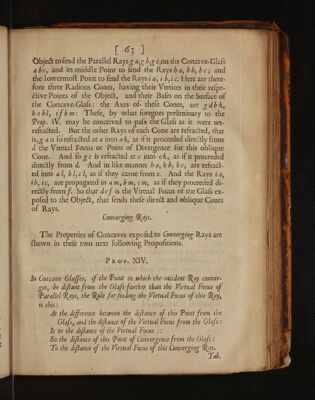 [ 63 ]
Object to send the Parallel Rays g a, g b, g c, on the Concave-Glass
a b c, and its middle Point to send the Rays h a, h b, h c; and
the lowermost Point to send the Rays i a, i b, i c. Here are there-
fore three Radious Cones, having their Vertices in their respe-
ctive Points of the Object, and their Bases on the Surface of
the Concave-Glass: the Axes of these Cones, are g d b k,
h e b l, i f b m: These, by what foregoes preliminary to the
Prop. IV. may be conceived to pass the Glass as it were un-
refracted. But the other Rays of each Cone are refracted, that
is, g a is refracted at a into a k, as if it proceeded directly from
d the Virtual Focus or Point of Divergence for this oblique
Cone. And so g c is refracted at c into c k, as if it proceeded
directly from d. And in like manner h a, h b, h c, are refract-
ed into a l, b l, c l, as if they came from e. And the Rays i a,
i b, i c, are propagated in a m, b m, c m, as if they proceeded di-
rectly from f. So that d e f is the Virtual Focus of the Glass ex-
posed to the Object, that sends these direct and oblique Cones
of Rays.
Converging Rays.
The Properties of Concaves exposed to Converging Rays are
shewn in these two next following Propositions.
PROP. XIV.
In Concave Glasses, if the Point to which the incident Ray conver-
ges, be distant from the Glass farther than the Virtual Focus of
Parallel Rays, the Rule for finding the Virtual Focus of this Ray,
is this:
As the difference between the distance of this Point from the
Glass, and the distance of the Virtual Focus from the Glass:
Is to the distance of the Virtual Focus ::
So the distance of this Point of Convergence from the Glass:
To the distance of the Virtual Focus of this Converging Ray.
Tab.